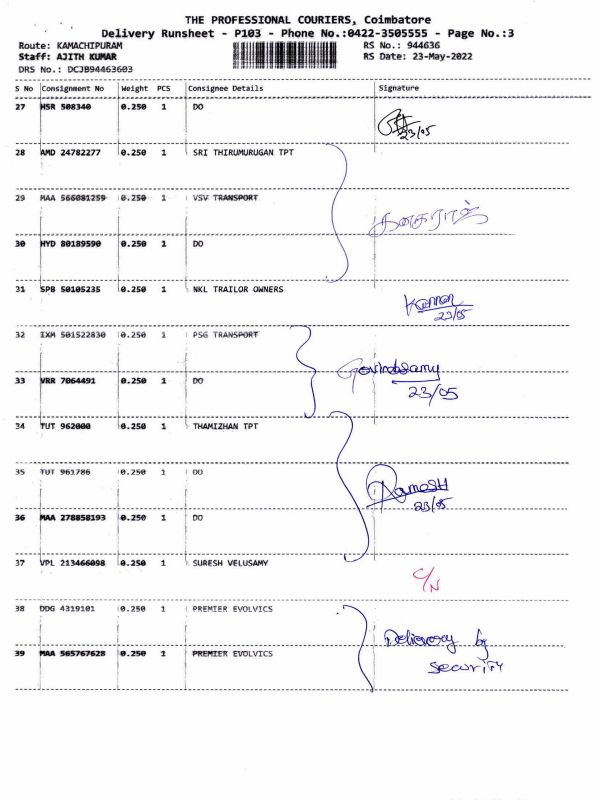 THE PROFESSIONAL COURIERS, Coimbatore
Delivery Runsheet - P103 - Phone No.:0422-3505555 - Page No.:3
Route: KAMACHIPURAM RS No.: 944636
Staff: AJITH KUMAR RS Date: 23-May-2022
DRS No.: DCJB94463603
S No Consignment No Weight PCS Consignee Details Signature
27 HSR 508340 0.250 1 DO
23/05
28 AMD 24782277 0.250 1 SRI THIRUMURUGAN TPT
29 MAA 566081259 0.250 1 VSV TRANSPORT
கனகராஜ்
30 HYD 80189590 0.250 1 DO
31 SPB 50105235 0.250 1 NKL TRAILOR OWNERS
Kannan
23/05
32 IXM 501522830 0.250 1 PSG TRANSPORT
Govindasamy
33 VRR 7064491 0.250 1 DO
23/05
34 TUT 962000 0.250 1 THAMIZHAN TPT
35 TUT 961786 0.250 1 DO
Ramesh
23/05
36 MAA 278858193 0.250 1 DO
37 VPL 213466098 0.250 1 SURESH VELUSAMY
C/N
38 DDG 4319101 0.250 1 PREMIER EVOLVICS
Delievery by
39 MAA 565767628 0.250 1 PREMIER EVOLVICS
security